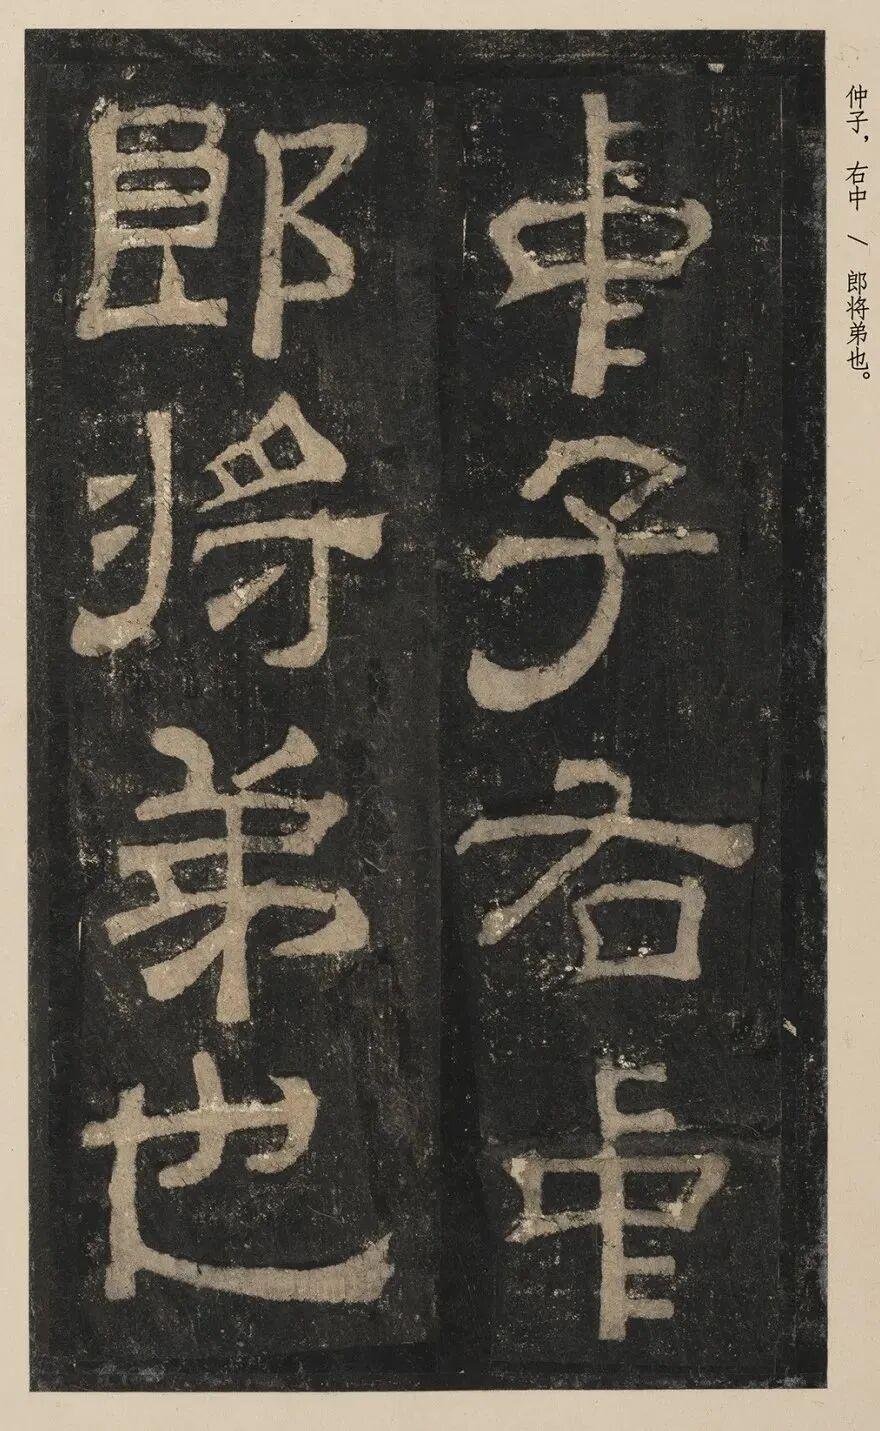 中子右中
郎将弟也
仲子，右中 / 郎将弟也。